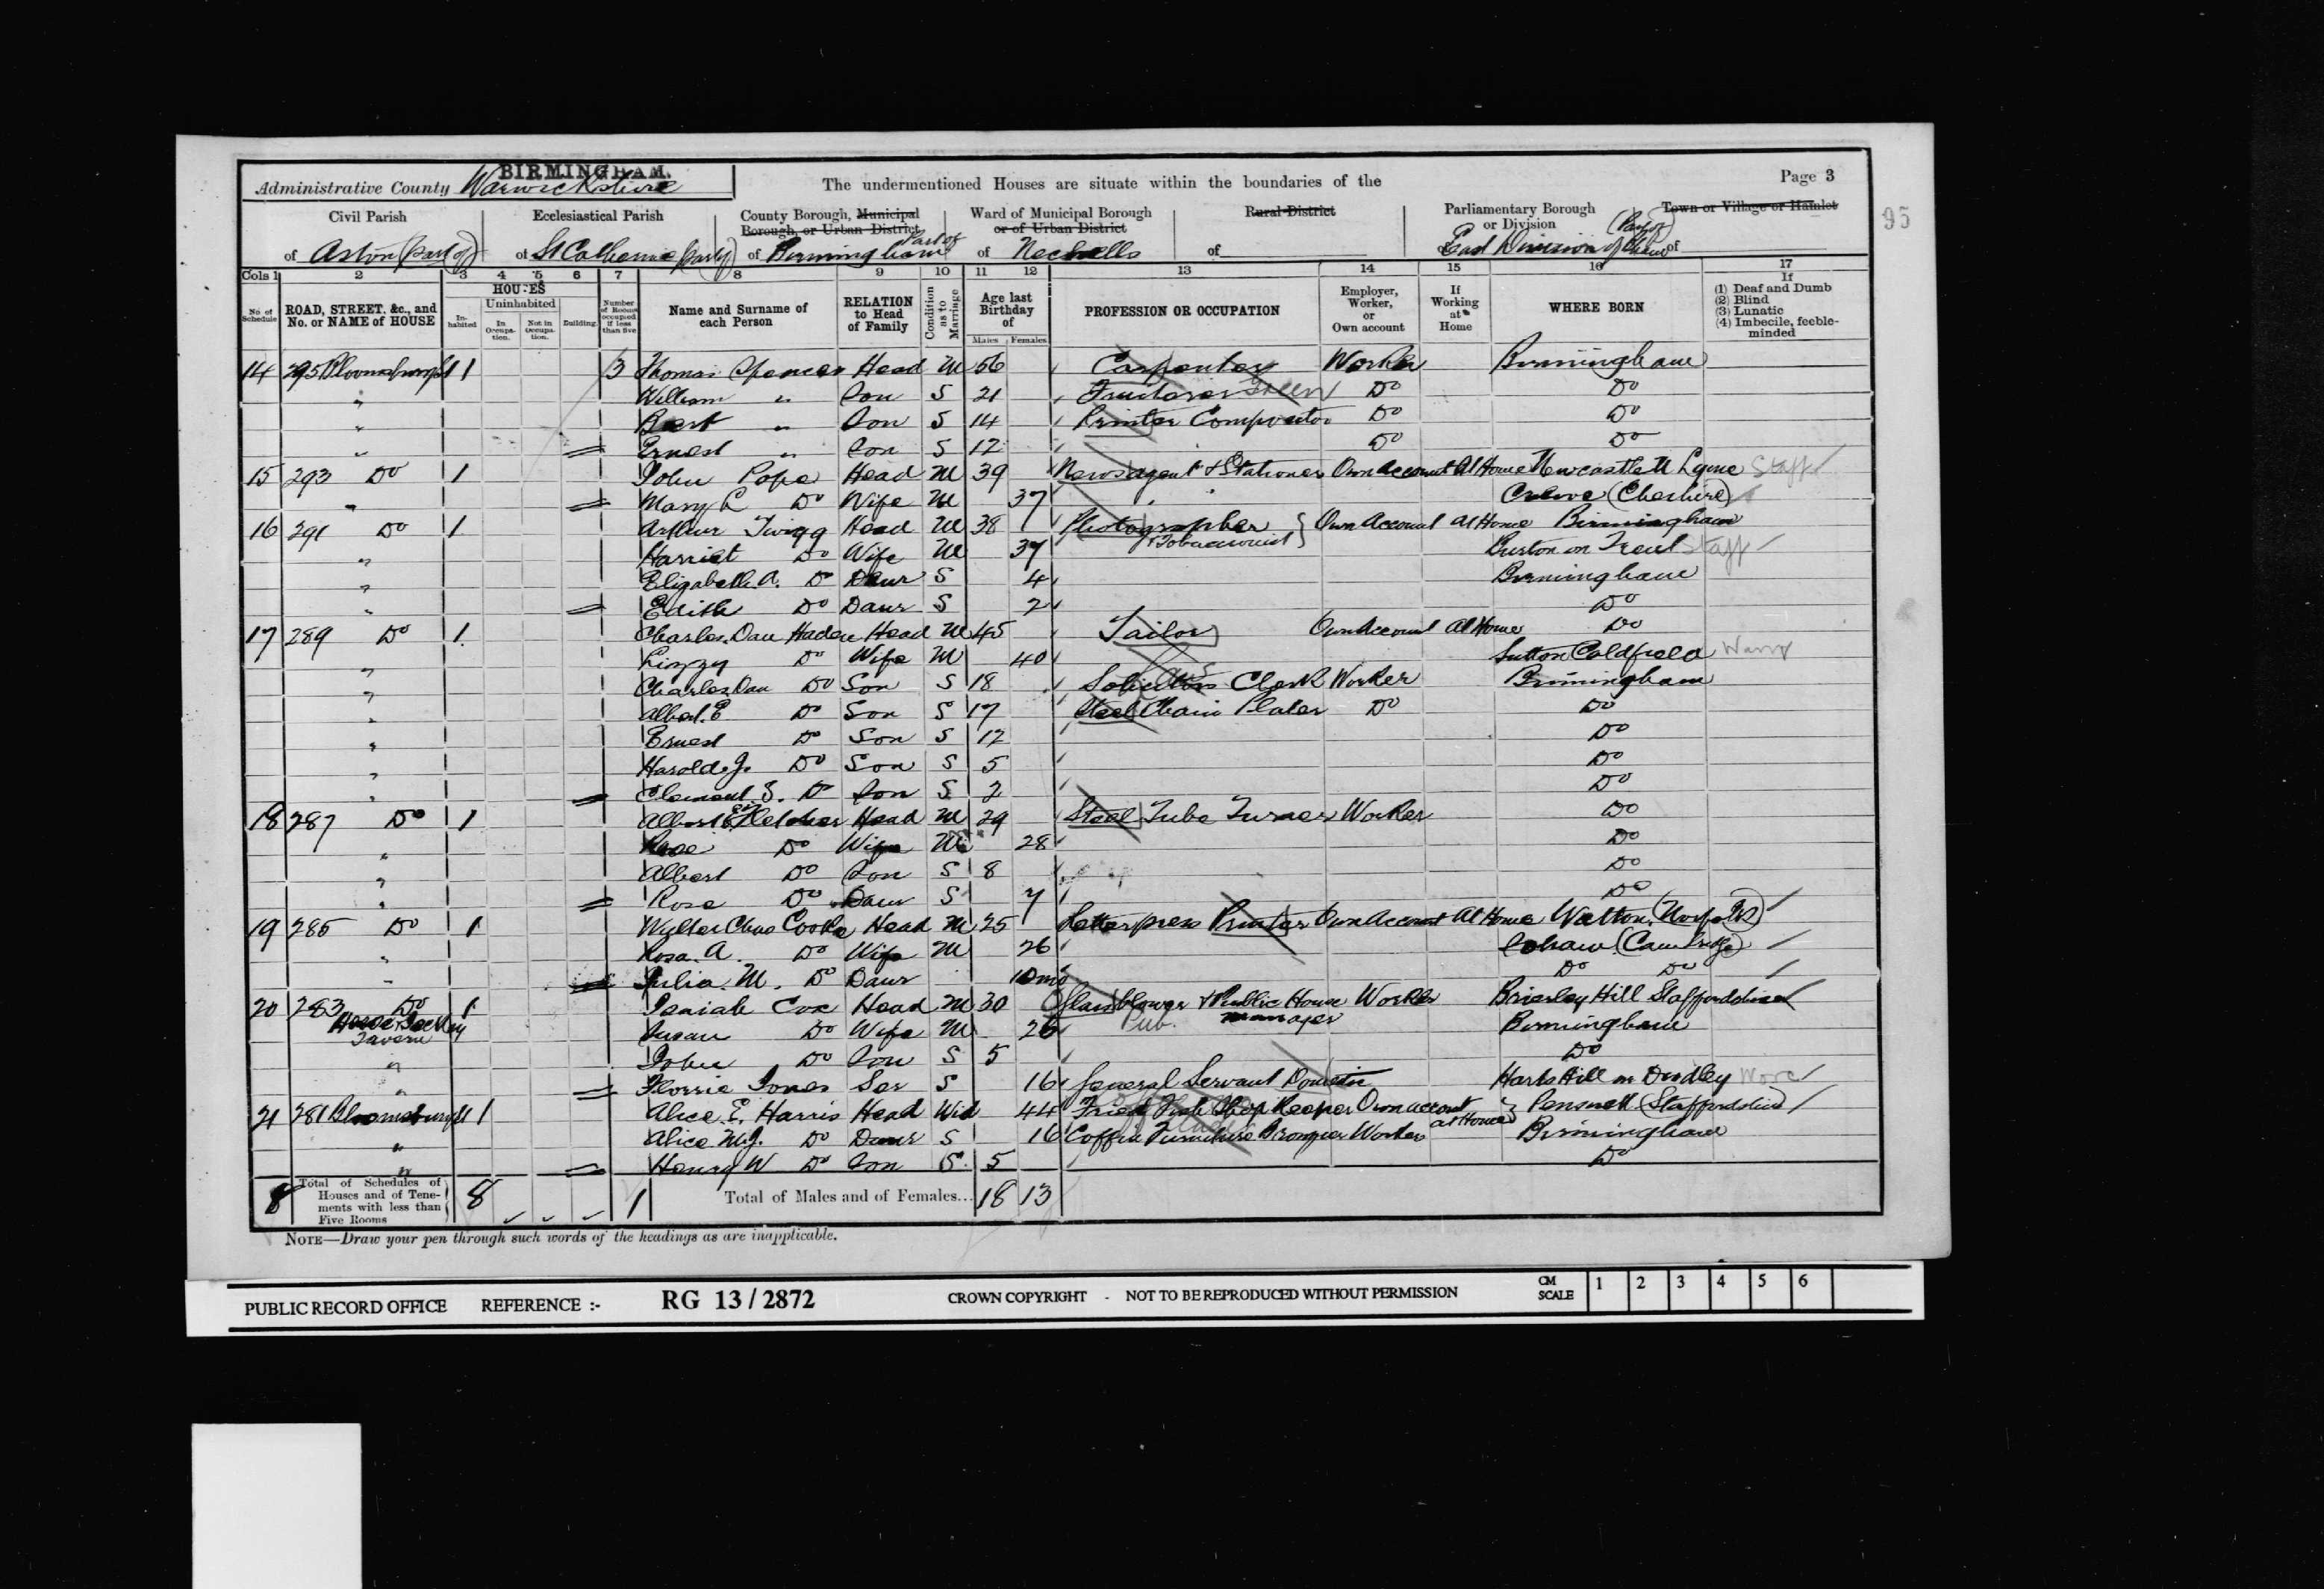 BIRMINGHAM.
Administrative County Warwickshire The undermentioned Houses are situate within the boundaries of the Page 3
Civil Parish Ecclesiastical Parish County Borough, Municipal Borough, or Urban District Ward of Municipal Borough or of Urban District Rural District Parliamentary Borough or Division Town or Village or Hamlet
95
of Aston (part of) of St Catherine (part of) of Part of Birmingham of Nechells of (Part of) East Division of B'ham of
Cols 1 2 3 4 5 6 7 8 9 10 11 12 13 14 15 16 17
No. of Schedule ROAD, STREET, &c., and No. or NAME of HOUSE HOUSES Inhabited Uninhabited In Occupation. Not in Occupation. Building. Number of Rooms occupied if less than five Name and Surname of each Person RELATION to Head of Family Condition as to Marriage Age last Birthday of Males Females PROFESSION OR OCCUPATION Employer, Worker, or Own account If Working at Home WHERE BORN If (1) Deaf and Dumb (2) Blind (3) Lunatic (4) Imbecile, feeble-minded
14 295 Bloomsbury St 1 3 Thomas Spencer Head M 56 Carpenter Worker Birmingham
" William " Son S 21 Fruiterer Do Do
" Bert " Son S 14 Printer Compositor Do Do
" Ernest " Son S 12 Do Do
15 293 Do 1 John Pope Head M 39 Newsagent & Stationer Own Account At Home Newcastle U Lyme Staff
" Mary L Do Wife M 37 Crewe (Cheshire)
16 291 Do 1 Arthur Twigg Head M 38 Photographer & Tobacconist } Own Account At Home Birmingham
" Harriet Do Wife M 37 Burton on Trent Staff
" Elizabeth A. Do Daur S 4 Birmingham
" Edith Do Daur S 2 Do
17 289 Do 1 Charles Dan Haden Head M 45 Tailor Own Account At Home Do
" Lizzy Do Wife M 40 Sutton Coldfield Warw
" Charles Dan Do Son S 18 Solicitors Clerk Worker Birmingham
" Albert E Do Son S 17 Steel Chain Plater Do Do
" Ernest Do Son S 12 Do
" Harold J. Do Son S 5 Do
" Clement S. Do Son S 2 Do
18 287 Do 1 Albert Fletcher Head M 29 Steel Tube Turner Worker Do
" Rose Do Wife M 28 Do
" Albert Do Son S 8 Do
" Rose Do Daur S 7 Do
19 285 Do 1 Walter Chas Cooke Head M 25 Letterpress Printer Own Account At Home Watton (Norfolk)
" Rosa A. Do Wife M 26 Soham (Cambridge)
" Julia M. Do Daur 10 mo Do Do
20 283 Do 1 Isaiah Cox Head M 30 Glassblower & Public House Manager Worker Brierley Hill Staffordshire
Tavern Susan Do Wife M 26 Pub. Birmingham
" John Do Son S 5 Do
" Florrie Jones Ser S 16 General Servant Domestic Harts Hill nr Dudley Worc
21 281 Bloomsbury St 1 Alice E. Harris Head Wid 44 Fried Fish Shop Keeper Own account at Home } Pensnett (Staffordshire)
" Alice M.J. Do Daur S 16 Coffin Furniture Bronzer Worker Birmingham
" Henry W Do Son S 5 Do
8 Total of Schedules of Houses and of Tenements with less than Five Rooms 8 1 Total of Males and of Females... 18 13
NOTE—Draw your pen through such words of the headings as are inapplicable.
PUBLIC RECORD OFFICE REFERENCE :- RG 13 / 2872 CROWN COPYRIGHT - NOT TO BE REPRODUCED WITHOUT PERMISSION CM SCALE 1 2 3 4 5 6